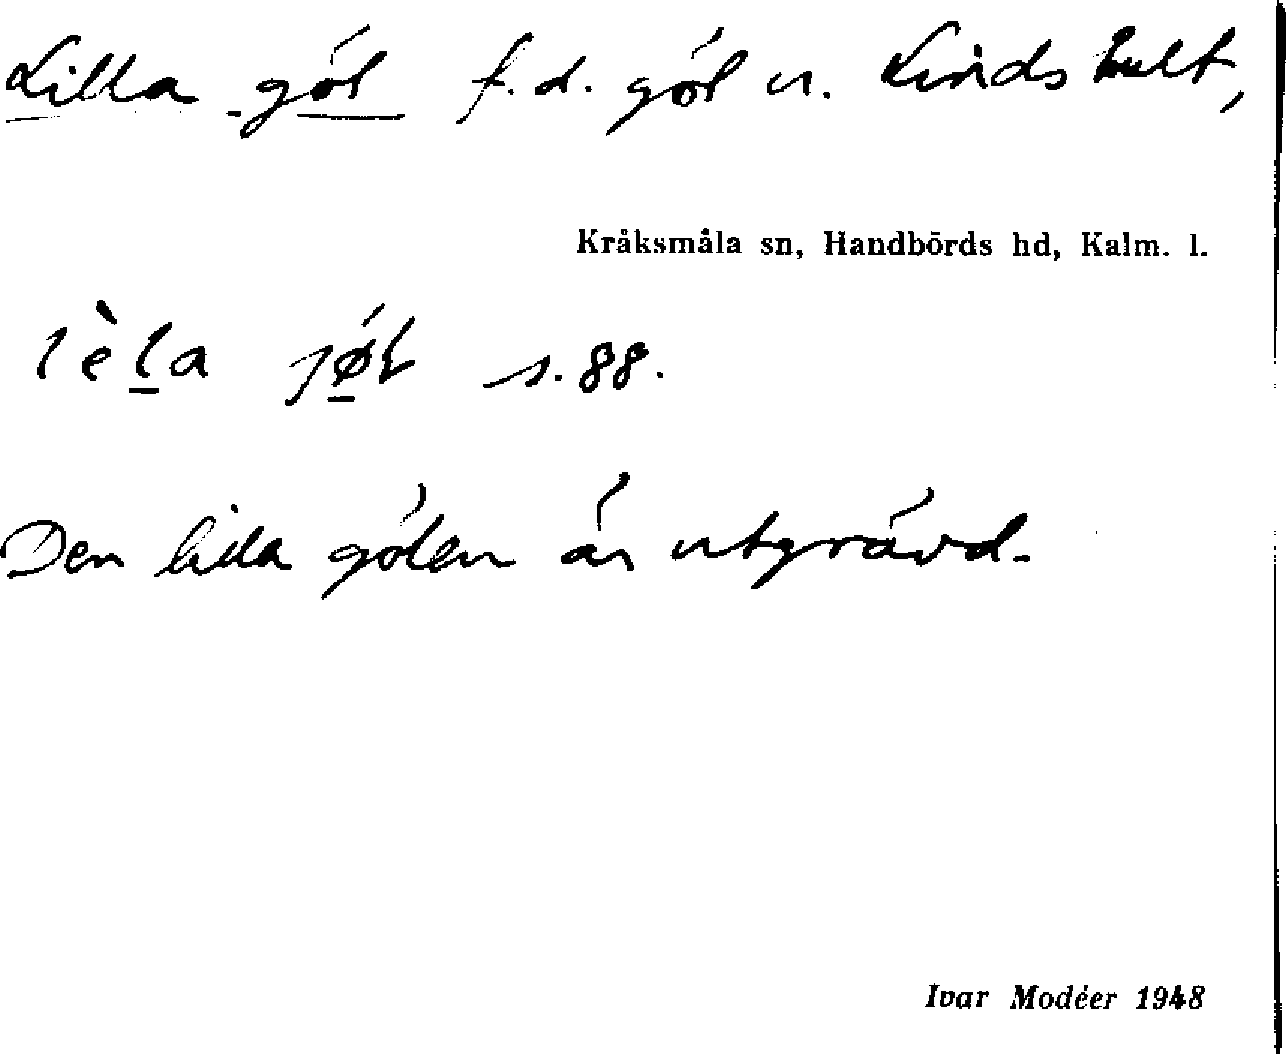 Lilla göl f.d. göl u. Lindshult,
Kråksmåla sn, Handbörds hd, Kalm. l.
lèla jøl s. 88.
Den lilla gölen är utgrävd.
Ivar Modéer 1948